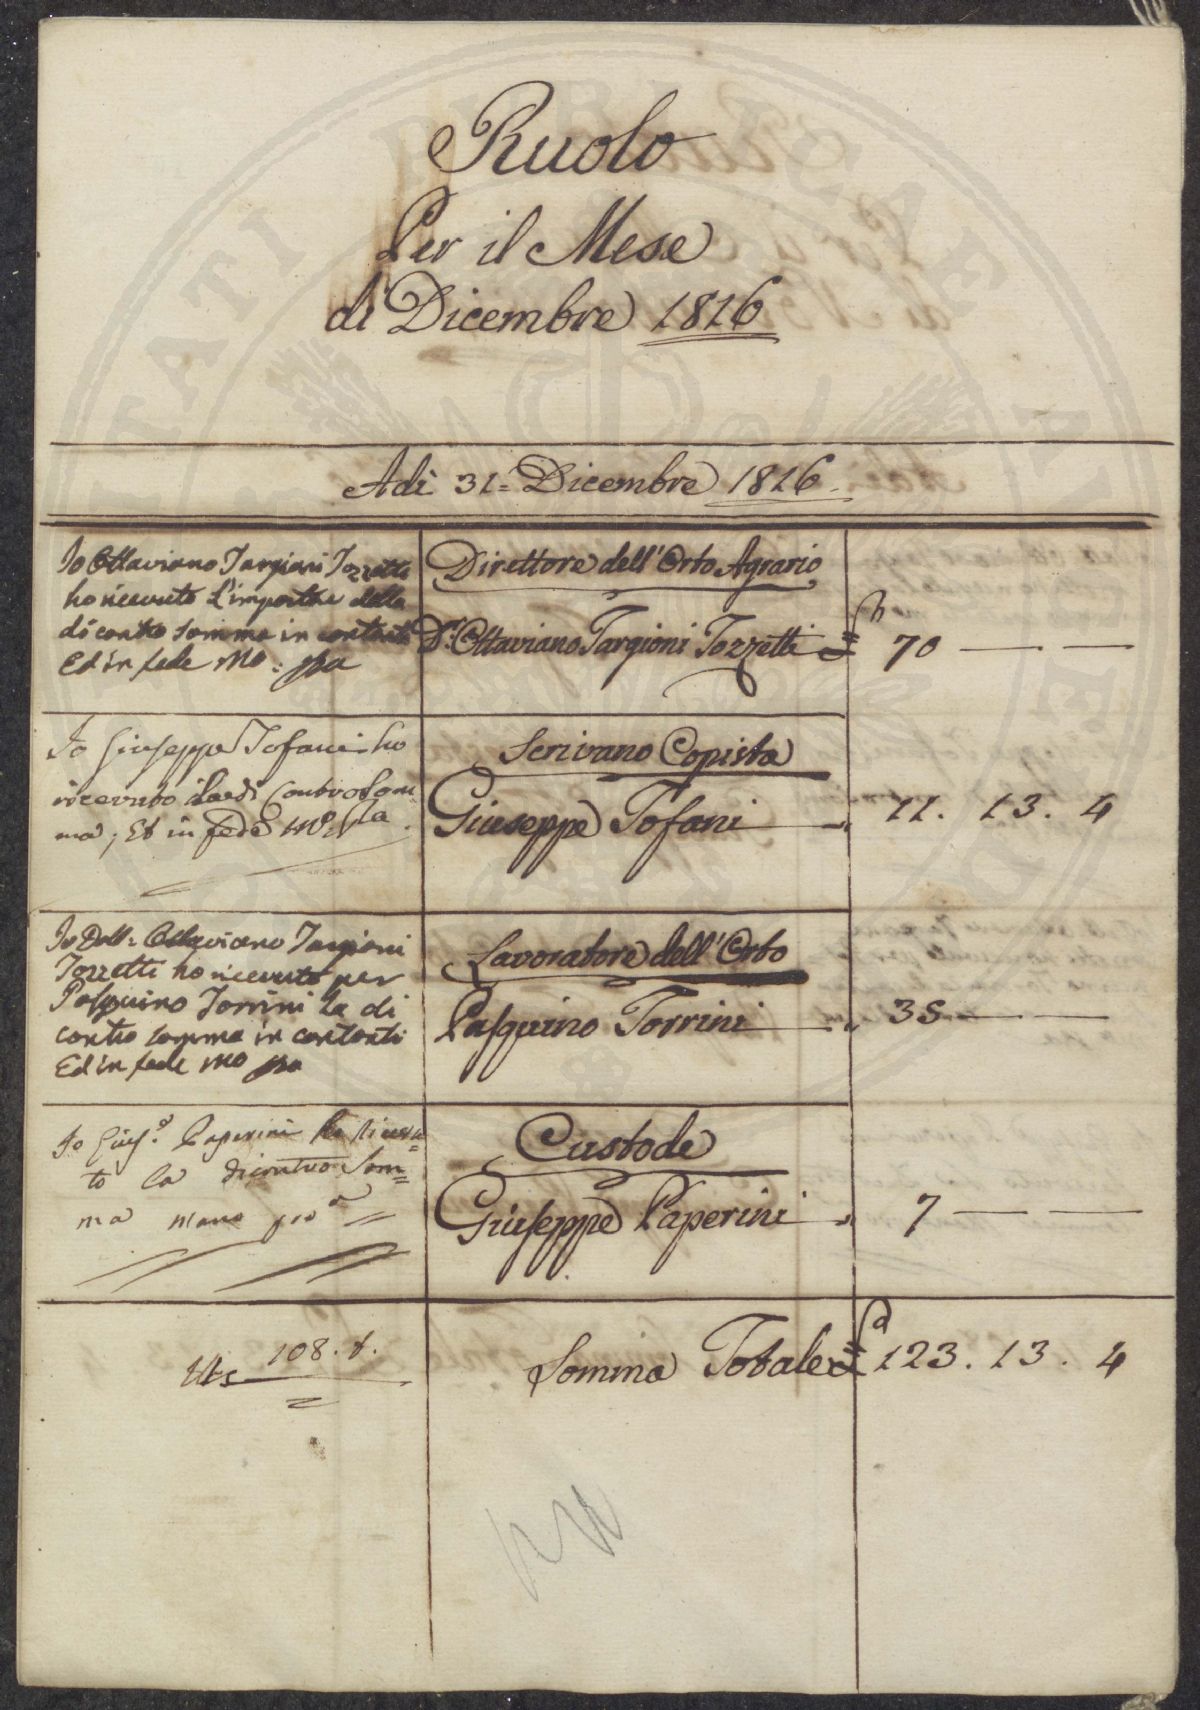 Ruolo
Per il Mese
di Dicembre 1816
Adì 31= Dicembre 1816.
Io Ottaviano Targioni Tozzetti
ho ricevuto L'importare della
di contro somma in contanti
Ed in fede mo: pa
Direttore dell'Orto Agrario
Dr. Ottaviano Targioni Tozzetti £ 70 — —
Io Giuseppe Tofani ho
ricevuto la di Contro Som=
ma; Et in fede mo: pa
Scrivano Copista
Giuseppe Tofani — „ 11. 13. 4
Io Dott: Ottaviano Targioni
Tozzetti ho ricevuto per
Pasquino Torrini La di
contro somma in contanti
Ed in fede mo pa
Lavoratore dell'Orto
Pasquino Torrini — „ 35 — —
Io Gius.e Paperini ho ricevu=
to la dicontro Som=
ma mano pro
Custode
Giuseppe Paperini — „ 7 — —
108. t.
Somma Totale £ 123. 13. 4